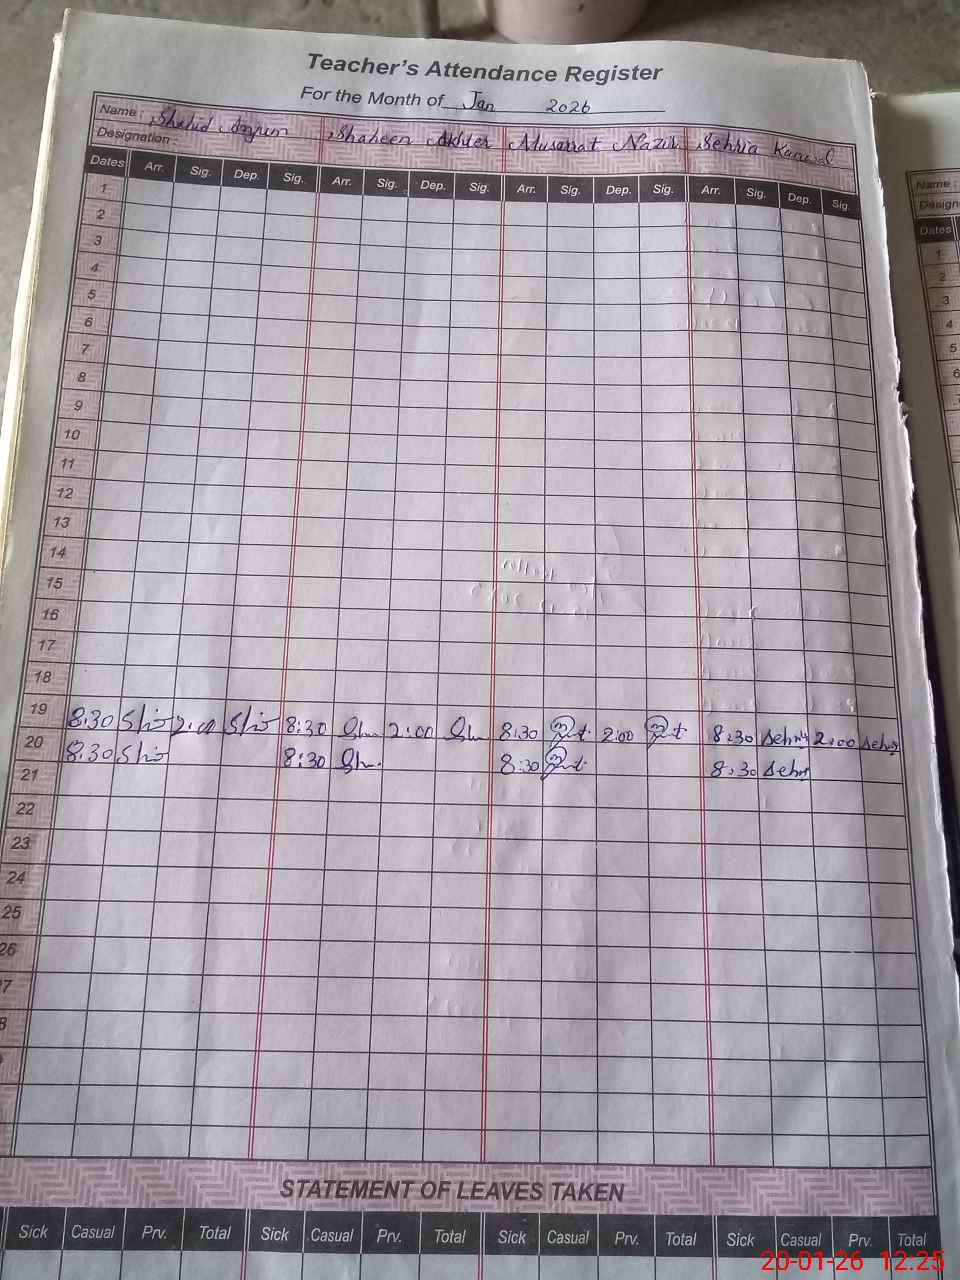 Teacher's Attendance Register
For the Month of Jan 2026
Name : Shahid Anjum Shaheen Akhter Musarrat Nazir Sehria Kanwal
Designation
Dates Arr. Sig. Dep. Sig. Arr. Sig. Dep. Sig. Arr. Sig. Dep. Sig. Arr. Sig. Dep. Sig.
1
2
3
4
5
6
7
8
9
10
11
12
13
14
15
16
17
18
19 8:30 2:00 8:30 2:00 8:30 2:00 8:30 2:00
20 8:30 8:30 8:30 8:30
21
22
23
24
25
26
7
8
STATEMENT OF LEAVES TAKEN
Sick Casual Prv. Total Sick Casual Prv. Total Sick Casual Prv. Total Sick Casual Prv. Total
Name :
Design
Dates
1
2
3
4
5
6
20-01-26 12:25